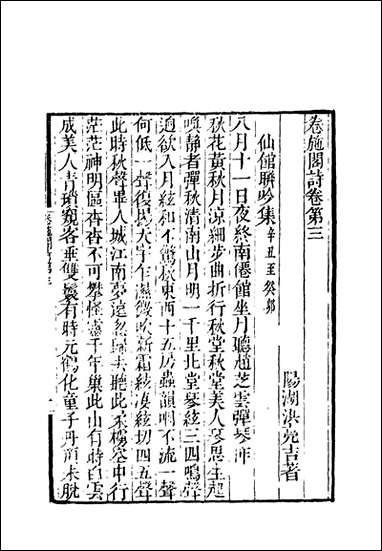 卷施閣詩卷第三
陽湖洪亮吉著
仙館聯吟集辛丑至癸卯
八月十一日夜終南僊館坐月聽趙芝雲彈琴作
秋花黃秋月涼細步曲折行秋堂秋堂美人琴思生起
喚靜者彈秋清南山月明一千里北堂琴絃三四鳴聲
迴欲入月絃和不驚秋東西十五房蟲韻咽不流一聲
何低一聲復長大字年濕微吹新霜絃淒絃切四五聲
此時秋聲畢入城江南夢遠忽歸去聽此柔櫓空中行
茫茫神明區杳杳不可攀怪靈千年巢此山有時白雲
成美人青瑣窺客垂雙鬟有時元鶴化童子丹頂未脫